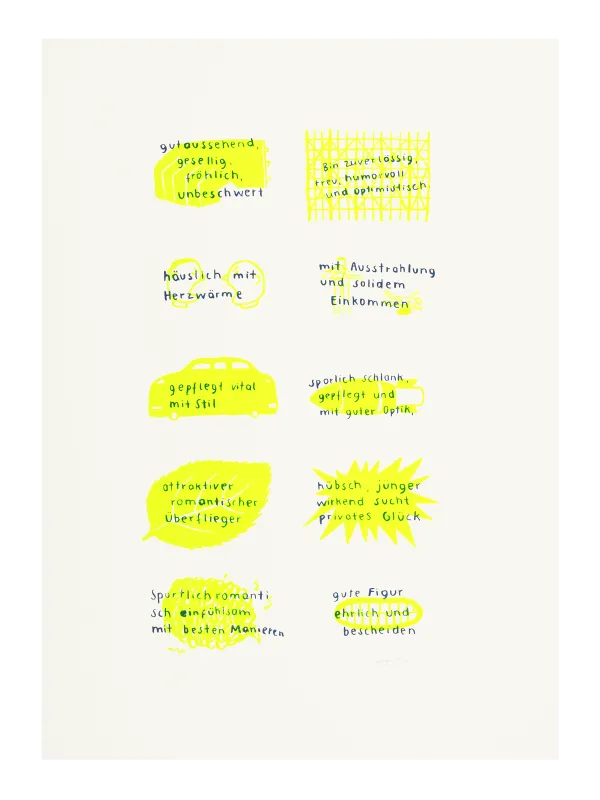 gutaussehend,
gesellig,
fröhlich,
unbeschwert
Bin zuverlässig,
treu, humorvoll
und optimistisch.
häuslich mit
Herzwärme
mit Ausstrahlung
und solidem
Einkommen
gepflegt vital
mit Stil
sporlich schlank,
gepflegt und
mit guter Optik,
attraktiver
romantischer
Überflieger
hübsch, junger
wirkend sucht
privates Glück
Sportlich romanti
sch einfühlsam
mit besten Manieren
gute Figur
ehrlich und
bescheiden